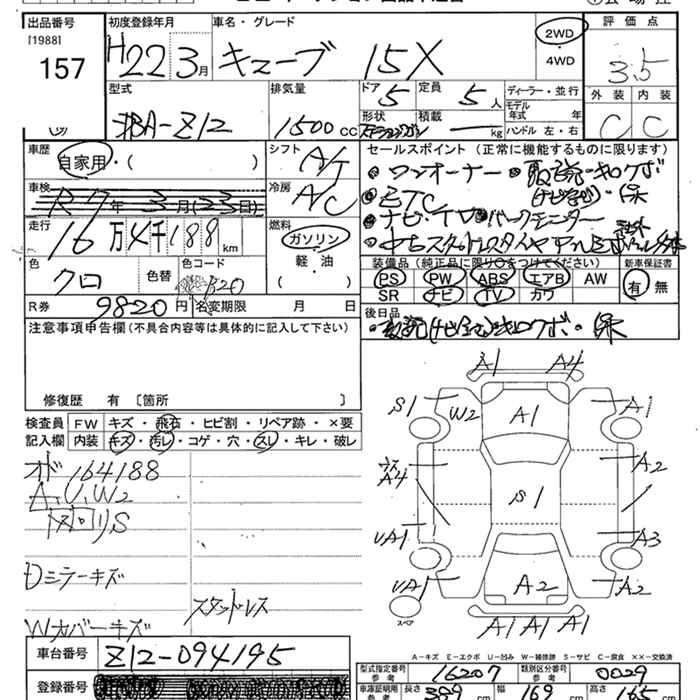 出品番号 初度登録年月 車名・グレード 評価点
[1988]
157 H22年3月 キューブ 15X 2WD・4WD 3.5
型式 排気量 ドア 5 定員 5人 ディーラー・並行 外装 内装
モデル年式 年
DBA-Z12 1500cc 形状 ステーションワゴン 積載 kg ハンドル 左・右 C C
車歴 自家用・( ) シフト A/T セールスポイント(正常に機能するものに限ります)
・ワンオーナー ・取説・キロクボ
車検 R7年3月(23日) 冷房 A/C ・ETC (ナビ含む)・保
・ナビ・TV・バックモニター
走行 16万4千188km 燃料 ガソリン・軽・油( )
装備品(純正品に限り○をつけてください) 新車保証書
色 クロ 色替 色コード PS PW ABS エアB AW 有 無
SR ナビ TV カワ
R券 9820円 名変期限 月 日 後日品
注意事項申告欄(不具合内容等は具体的に記入して下さい) ・取説(ナビ含む)・キロクボ・保
修復歴 有 〔箇所 〕
検査員記入欄 FW キズ・飛石・ヒビ割・リペア跡・×要
内装 キズ・汚レ・コゲ・穴・スレ・キレ・破レ
オド 164188
A,U,W2
S
Dミラーキズ
スタッドレス
Wカバーキズ
A1 A4
S1 W2 A1 A1
A4 A2
S1
UA1 A3
UA1 A2 A2
スペア
A1 A1 A1
A-キズ E-エクボ U-凹み W-補修跡 S-サビ C-腐食 ××-交換済
車台番号 Z12-094195
型式指定番号 参考 16207 類別区分番号 参考 0029
登録番号
車庫証明用 参考 長さ 389cm 幅 169cm 高さ 165cm